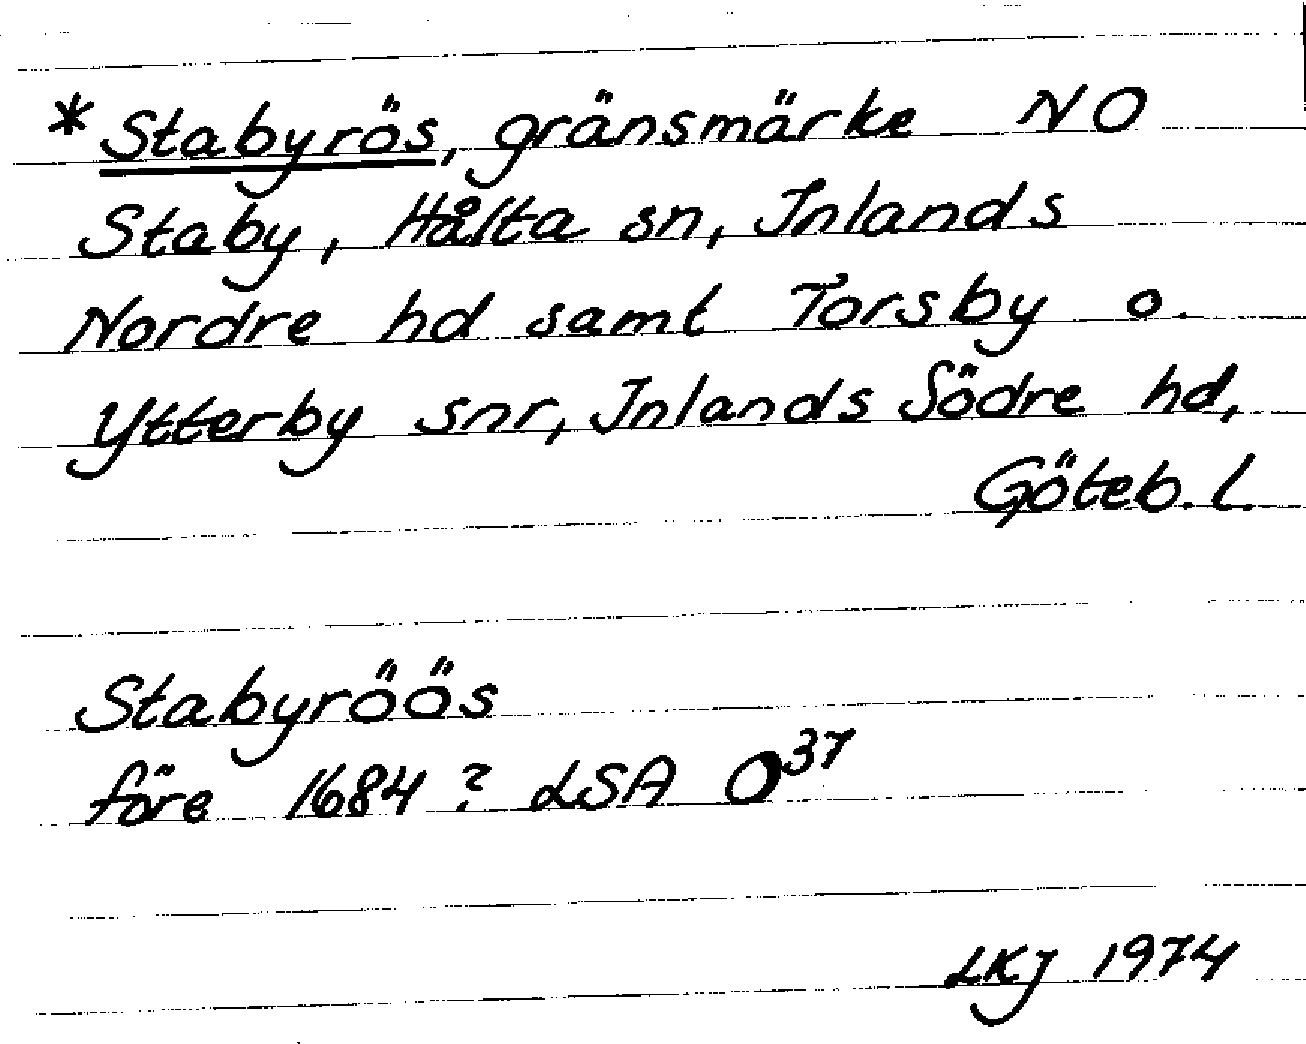 *Stabyrös, gränsmärke NO
Staby, Hålta sn, Inlands
Nordre hd samt Torsby o.
Ytterby snr, Inlands Södre hd,
Göteb. l.
Stabyröös
före 1684? LSA O³⁷
LKJ 1974